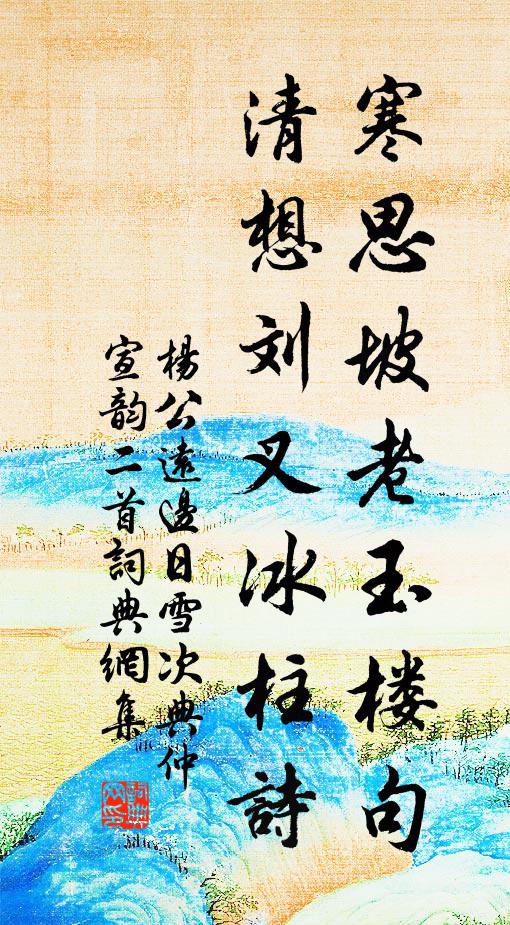 寒思坡老玉楼句
清想刘叉冰柱詩
楊公遠邊日雪次典仲
宣韵二首詞典網集